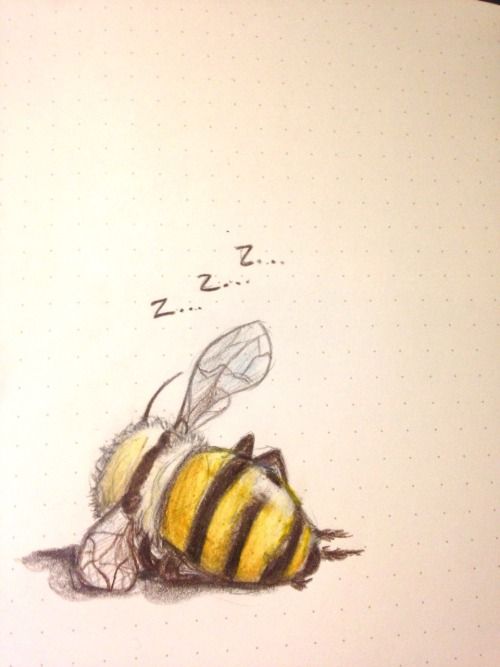 Z... Z... Z...